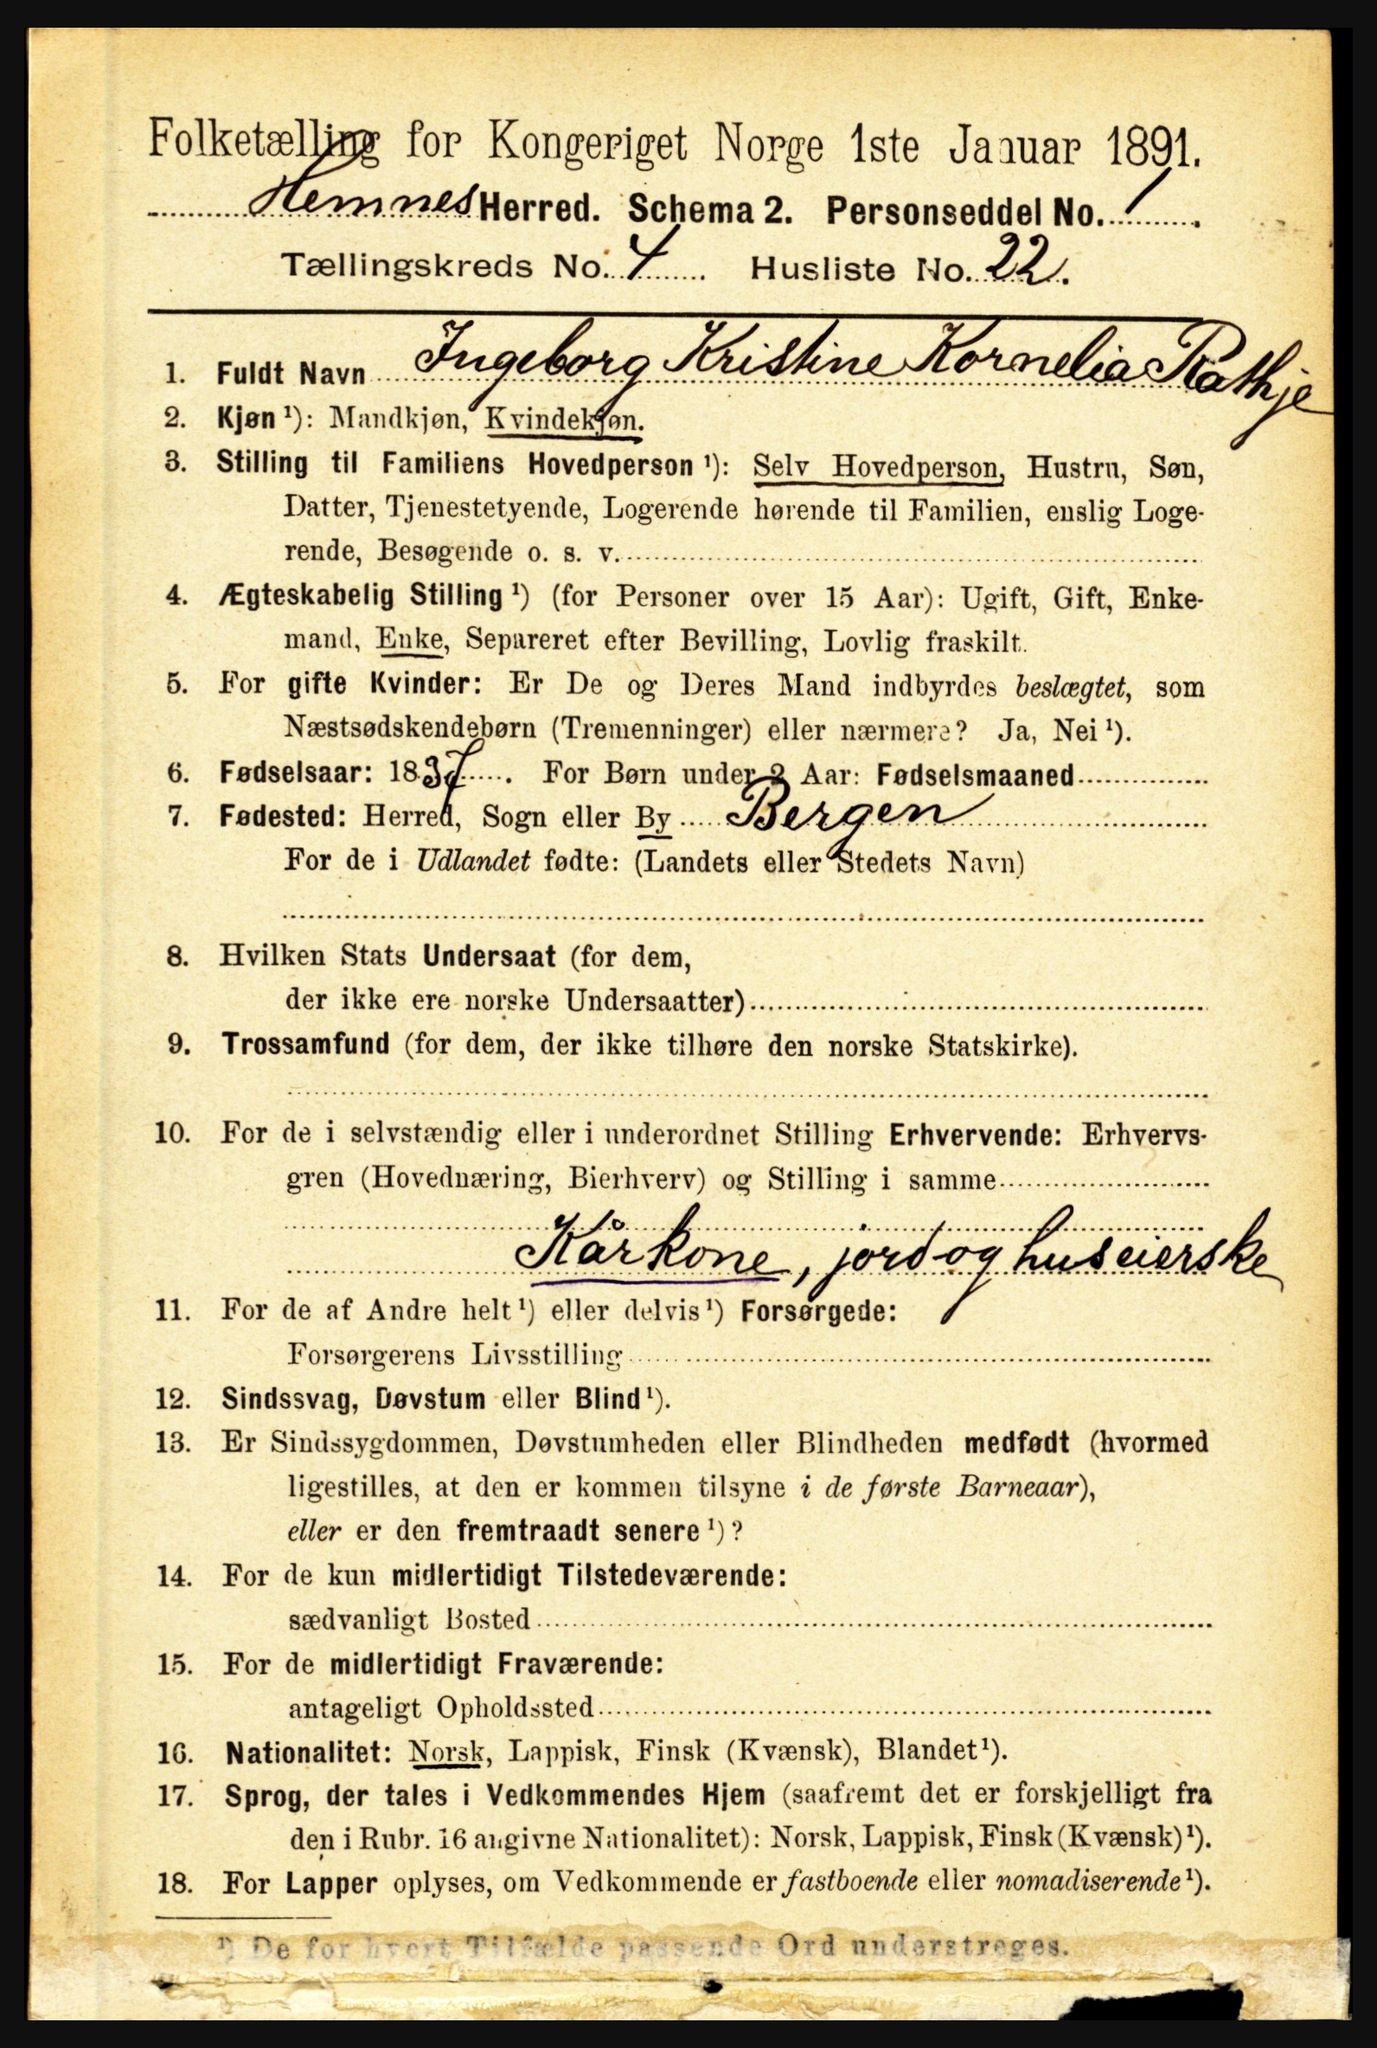 Folketælling for Kongeriget Norge 1ste Januar 1891.
Hemnes Herred. Schema 2. Personseddel No. 1.
Tællingskreds No. 4 Husliste No. 22.
1. Fuldt Navn Ingeborg Kristine Kornelia Rathje
2. Kjøn ¹): Mandkjøn, Kvindekjøn.
3. Stilling til Familiens Hovedperson ¹): Selv Hovedperson, Hustru, Søn,
Datter, Tjenestetyende, Logerende hørende til Familien, enslig Loge-
rende, Besøgende o. s. v.
4. Ægteskabelig Stilling ¹) (for Personer over 15 Aar): Ugift, Gift, Enke-
mand, Enke, Separeret efter Bevilling, Lovlig fraskilt.
5. For gifte Kvinder: Er De og Deres Mand indbyrdes beslægtet, som
Næstsødskendebørn (Tremenninger) eller nærmere? Ja, Nei ¹).
6. Fødselsaar: 1837. For Børn under 2 Aar: Fødselsmaaned
7. Fødested: Herred, Sogn eller By Bergen
For de i Udlandet fødte: (Landets eller Stedets Navn)
8. Hvilken Stats Undersaat (for dem,
der ikke ere norske Undersaatter)
9. Trossamfund (for dem, der ikke tilhøre den norske Statskirke).
10. For de i selvstændig eller i underordnet Stilling Erhvervende: Erhvervs-
gren (Hovednæring, Bierhverv) og Stilling i samme
Kårkone, jord og huseierske
11. For de af Andre helt ¹) eller delvis ¹) Forsørgede:
Forsørgerens Livsstilling
12. Sindssvag, Døvstum eller Blind ¹).
13. Er Sindssygdommen, Døvstumheden eller Blindheden medfødt (hvormed
ligestilles, at den er kommen tilsyne i de første Barneaar),
eller er den fremtraadt senere ¹)?
14. For de kun midlertidigt Tilstedeværende:
sædvanligt Bosted
15. For de midlertidigt Fraværende:
antageligt Opholdssted
16. Nationalitet: Norsk, Lappisk, Finsk (Kvænsk), Blandet ¹).
17. Sprog, der tales i Vedkommendes Hjem (saafremt det er forskjelligt fra
den i Rubr. 16 angivne Nationalitet): Norsk, Lappisk, Finsk (Kvænsk) ¹).
18. For Lapper oplyses, om Vedkommende er fastboende eller nomadiserende ¹).
¹) De for hvert Tilfælde passende Ord understreges.